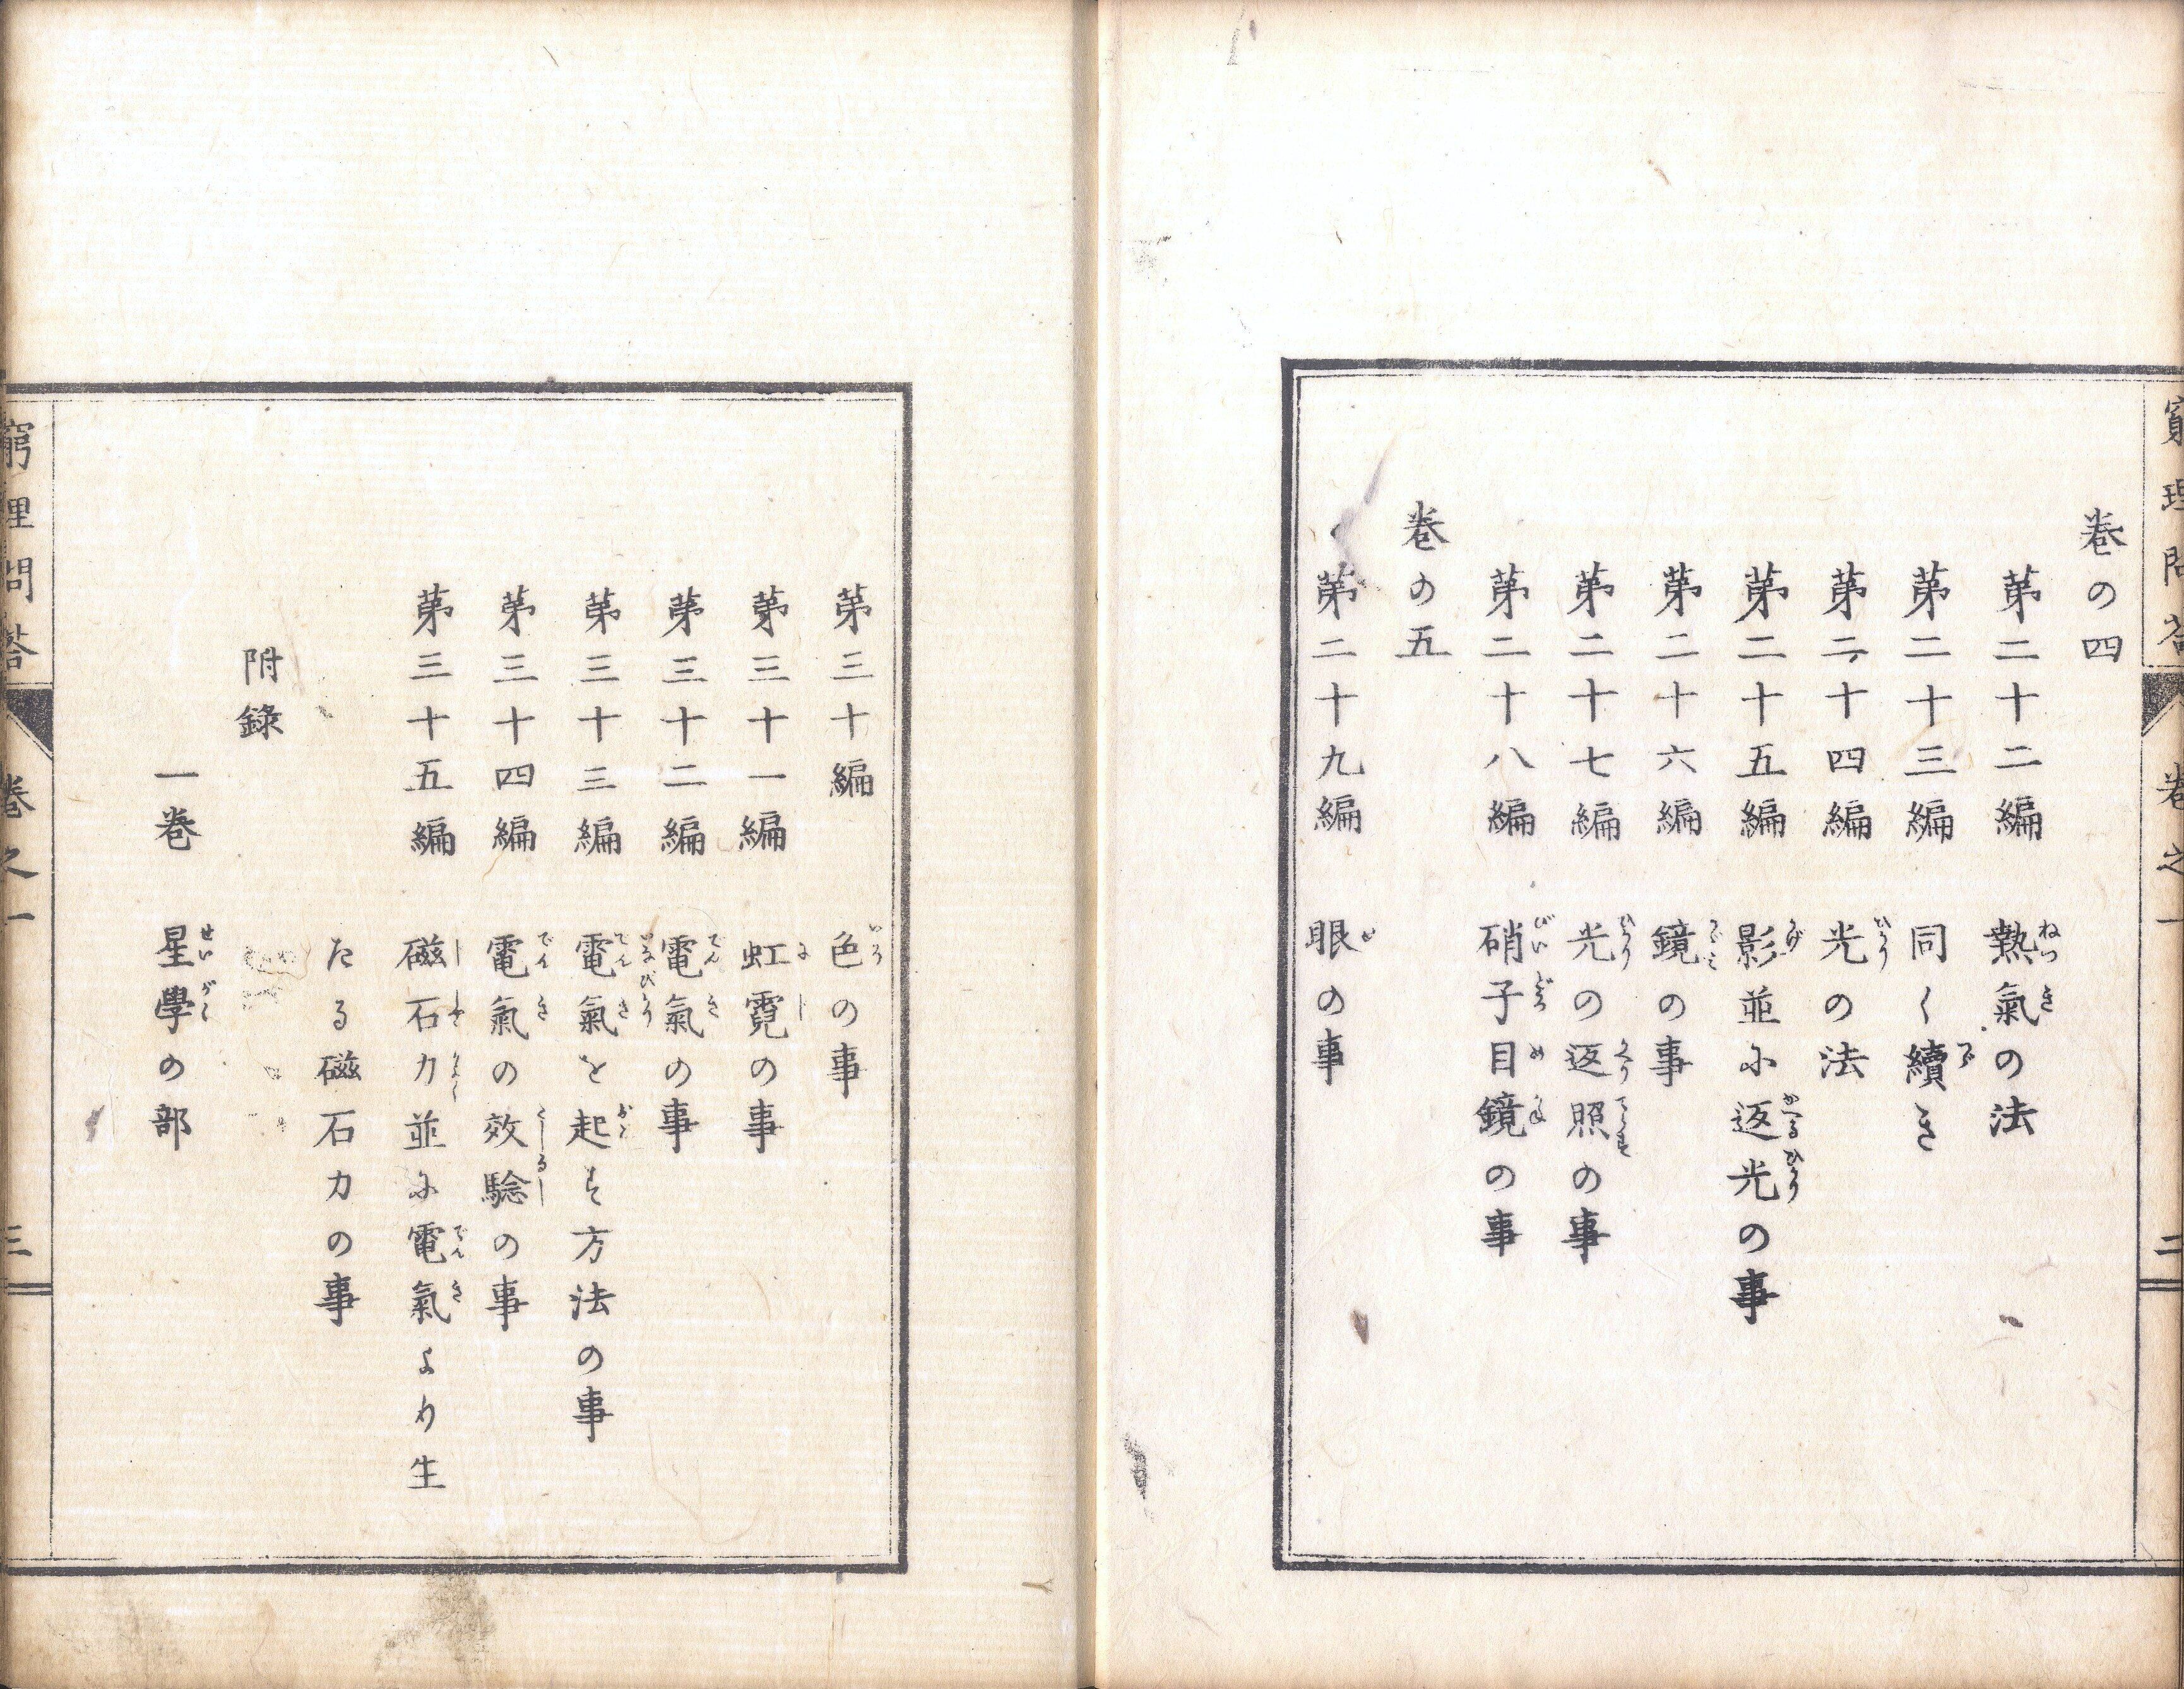 窮理問答 卷之一 二
卷の四
第二十二編 熱氣の法
第二十三編 同く續き
第二十四編 光の法
第二十五編 影並に返光の事
第二十六編 鏡の事
第二十七編 光の返照の事
第二十八編 硝子目鏡の事
卷の五
第二十九編 眼の事
第三十編 色の事
第三十一編 虹霓の事
第三十二編 電氣の事
第三十三編 電氣を起す方法の事
第三十四編 電氣の效驗の事
第三十五編 磁石力並に電氣より生
たる磁石力の事
附錄
一卷 星學の部
窮理問答 卷之一 三